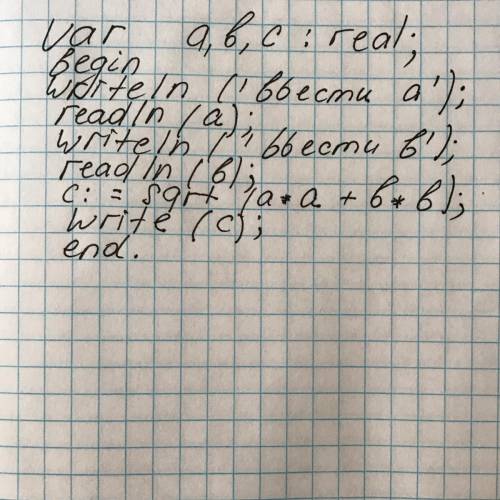 var a, b, c : real;
begin
writeln ('ввести a');
readln (a);
writeln ('ввести b');
readln (b);
c: = sqrt (a * a + b * b);
write (c);
end.